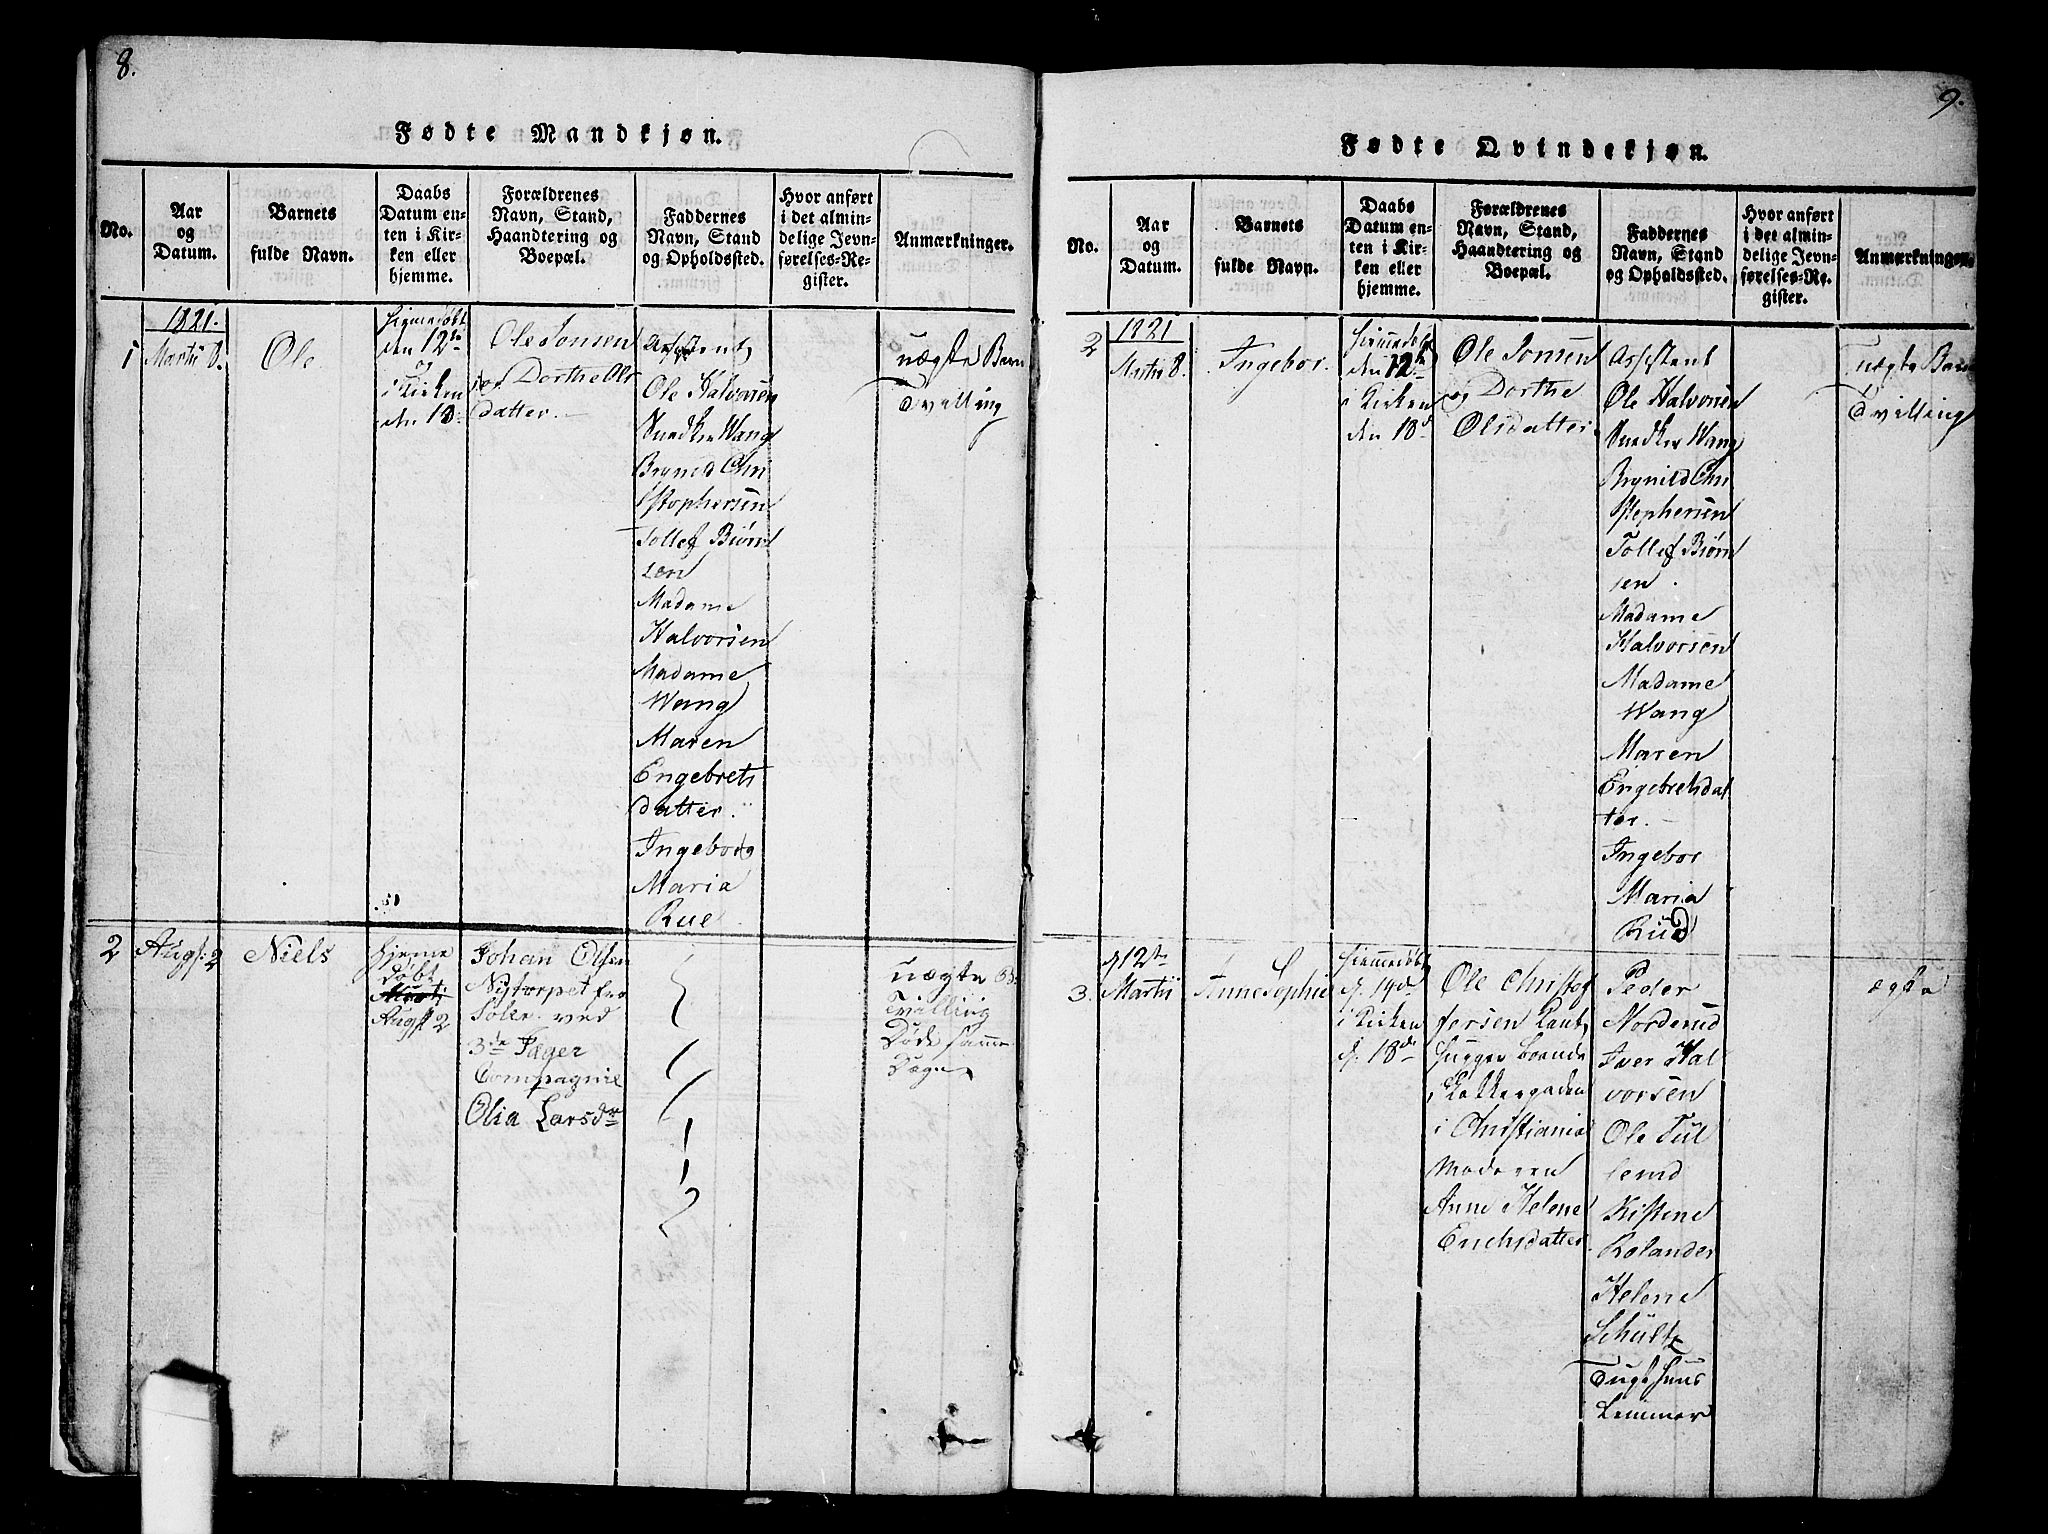 8.
Fødte Mandkjøn.
No.
Aar
og
Datum.
Barnets
fulde Navn.
Daabs
Datum en-
ten i Kir-
ken eller
hjemme.
Forældrenes
Navn, Stand,
Haandtering og
Boepæl.
Faddernes
Navn, Stand
og Opholdssted.
Hvor anført
i det almin-
delige Jevn-
førelses-Re-
gister.
Anmærkninger.
1
1821.
Martii 8.
Ole
hjemedøbt
den 12te
og
i Kirken
den 18
Ole Jonsen
og Dorthe Ols
datter.
Assistent
Ole Halvorsen
Snedker Wang
Brynild Chri
stophersen
Tollef Biørn
sen
Madame
Halvorsen
Madame
Wang
Maren
Engebrets
datter.
Ingeborg
Maria
Rue
uægte Barn
Tvilling
2
Augst: 2
Niels
hjemme
døbt
Augst 2
Johan Olsen
Nytorpet fra
Soler ved
3de Jæger
Compagnie
Olia Larsdr
uægte B.
Tvilling
Døde samme
Dag
9.
Fødte Qvindekjøn.
No.
Aar
og
Datum.
Barnets
fulde Navn.
Daabs
Datum en-
ten i Kir-
ken eller
hjemme.
Forældrenes
Navn, Stand,
Haandtering og
Boepæl.
Faddernes
Navn, Stand
og Opholdssted.
Hvor anført
i det almin-
delige Jevn-
førelses-Re-
gister.
Anmærkninger.
2
1821
Martii 8.
Ingebor.
hjemedøbt
den 12te
i Kirken
den 18d
Ole Jonsen
og Dorthe
Olsdatter.
Assistent
Ole Halvorsen
Snedker Wang
Brynild Chri
stophersen
Tollef Biørn
sen.
Madame
Halvorsen
Madame
Wang
Maren
Engebretsdat
ter.
Ingebor
Maria
Rud
uægte Barn
Tvilling
3.
d 12te
Martii
Anne Sophie
hjemmedøbt
d. 19de
i Kirken
d. 18de
Ole Christof
fersen
hugger boende
i
i Christiania
Moderen
Anne Helene
Erichsdatter.
Peder
Norderud
Iver Hal
vorsen
Ole Tul
lerud
Kistene
Rolander
Helene
Schultz
Lemmer
ægte